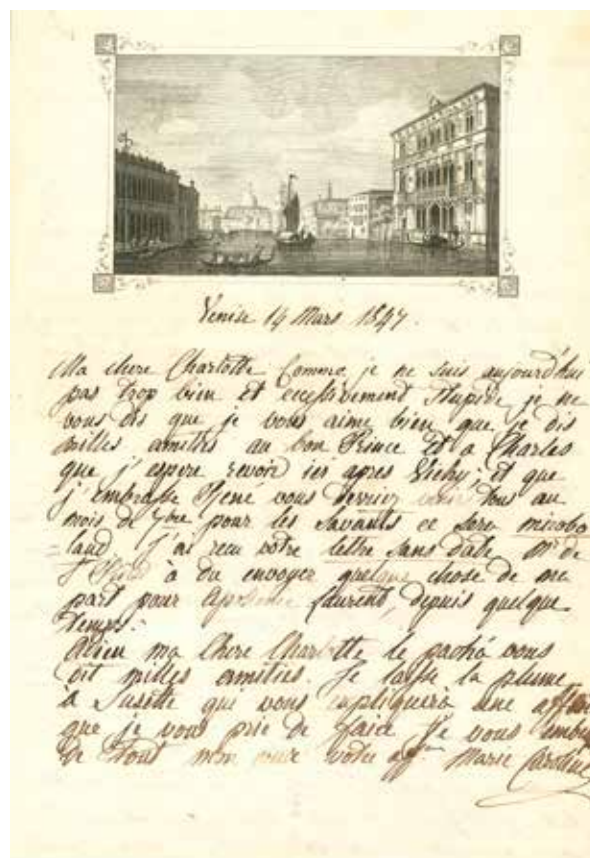 Venise 14 Mars 1847.
Ma chere Charlotte Comme je ne suis aujourd'hui
pas trop bien et excessivement stupide je ne
vous dis que je vous aime bien que je dis
milles amitiés au bon Prince et a Charles
que j'espere revoir ici apres Vichy, et que
j'embrasse René vous devriez venir tous au
mois de 7bre pour les savants ce sera mirobo
lant J'ai recu votre lettre sans date Mr de
à du envoyer quelque chose de ma
part pour Laurent, depuis quelque
temps.
Adieu ma Chere Charlotte le pacha vous
dit milles amities. Je laisse la plume
à Susette qui vous expliquera une affaire
que je vous prie de faire Je vous
de tout mon votre aff. Marie Caroline